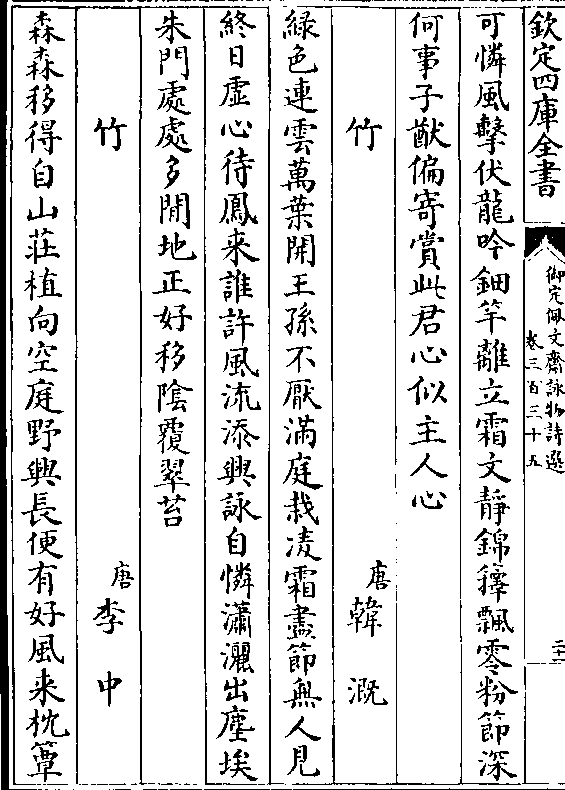 欽定四庫全書
御定佩文齋詠物詩選
卷三百三十五
可憐風擊伏龍吟鈿竿離立霜文靜錦籜飄零粉節深
何事子猷偏寄賞此君心似主人心
竹
唐韓溉
綠色連雲萬葉開王孫不厭滿庭栽凌霜盡節無人見
終日虛心待鳳来誰許風流添興詠自憐瀟灑出塵埃
朱門處處多閒地正好移陰覆翠苔
竹
唐李中
森森移得自山莊植向空庭野興長便有好風来枕簟